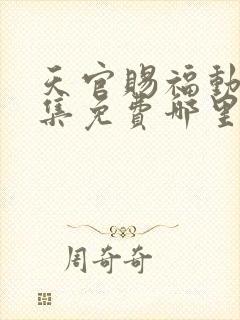 天官賜福動
集免費哪里
周奇奇